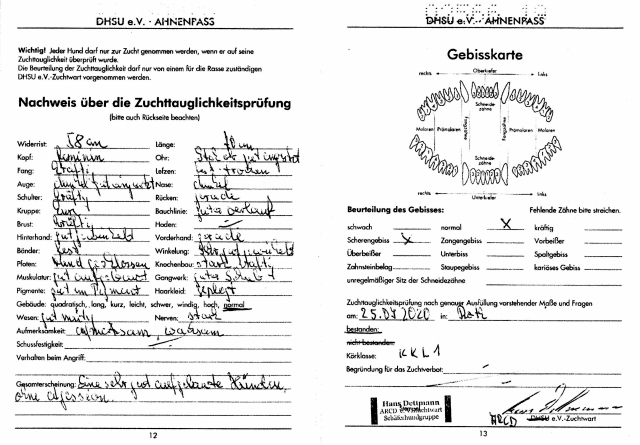 DHSU e.V. · AHNENPASS
Wichtig! Jeder Hund darf nur zur Zucht genommen werden, wenn er auf seine
Zuchttauglichkeit überprüft wurde.
Die Beurteilung der Zuchttauglichkeit darf nur von einem für die Rasse zuständigen
DHSU e.V.-Zuchtwart vorgenommen werden.
Nachweis über die Zuchttauglichkeitsprüfung
(bitte auch Rückseite beachten)
Widerrist: 58 cm Länge: 70 cm
Kopf: feminin Ohr:
Fang: kräftig Lefzen: trocken
Auge: dunkel Nase: dunkel
Schulter: kräftig Rücken: gerade
Kruppe: kurz Bauchlinie: guter verlauf
Brust: kräftig Hoden: –
Hinterhand: gut Vorderhand: gerade
Bänder: fest Winkelung: sehr gut gewinkelt
Pfoten: rund geschlossen Knochenbau: stark kräftig
Muskulatur: gut aufgebaut Gangwerk: guter Schub
Pigmente: gut im Pigment Haarkleid: gepflegt
Gebäude: quadratisch, lang, kurz, leicht, schwer, windig, hoch, normal
Wesen: gut mutig Nerven: stark
Aufmerksamkeit: aufmerksam, wachsam
Schussfestigkeit:
Verhalten beim Angriff:
Gesamterscheinung: Eine sehr gut aufgebaute Hündin,
ohne
12
DHSU e.V. · AHNENPASS
Gebisskarte
rechts Oberkiefer links
Schneide-
zähne
Molaren Prämolaren Fangzähne Fangzähne Prämolaren Molaren
Schneide-
zähne
rechts Unterkiefer links
Beurteilung des Gebisses: Fehlende Zähne bitte streichen.
schwach normal X kräftig
Scherengebiss X Zangengebiss Vorbeißer
Überbeißer Unterbiss Spaltgebiss
Zahnsteinbelag Staupegebiss kariöses Gebiss
unregelmäßiger Sitz der Schneidezähne
Zuchttauglichkeitsprüfung nach genauer Ausfüllung vorstehender Maße und Fragen
am: 25.07.2020 in:
bestanden:
nicht bestanden:
Körklasse: KKL1
Begründung für das Zuchtverbot:
Hans Dettmann
ARCD Zuchtwart
Schäferhundgruppe
ARCD DHSU e.V.-Zuchtwart
13